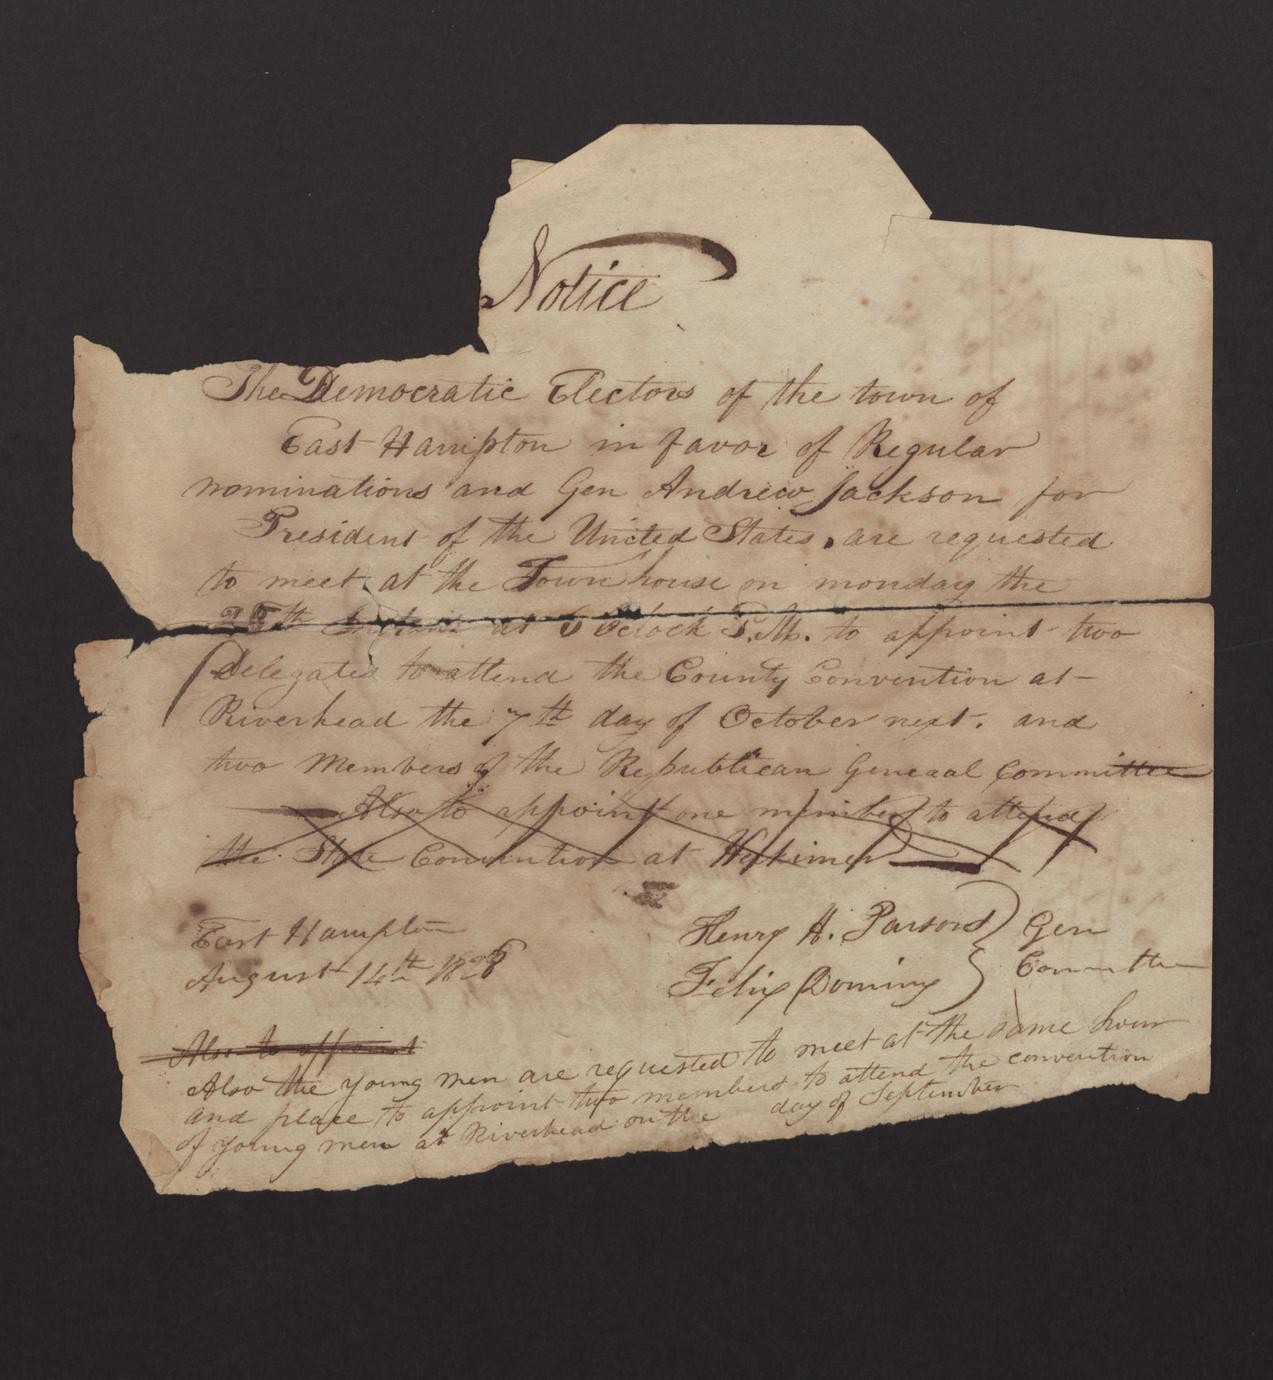 Notice
The Democratic Electors of the town of
East Hampton in favor of Regular
nominations and Gen Andrew Jackson for
President of the United States, are requested
to meet at the Town house on monday the
25th Instant at 6 oClock P.M. to appoint two
Delegates to attend the County Convention at
Riverhead the 7th day of October next. and
two Members of the Republican General Committee
Also to appoint one member to attend
the State Convention at Herkimer
East Hampton
August 14th 1828
Henry H. Parsons
Felix Dominy
Gen
Committee
Also to appoint
Also the young men are requested to meet at the same hour
and place to appoint two members to attend the convention
of young men at Riverhead on the day of September